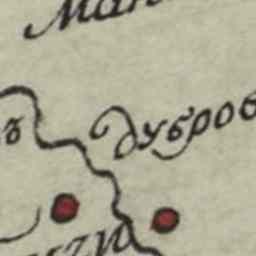 Ман
ъ
дубров